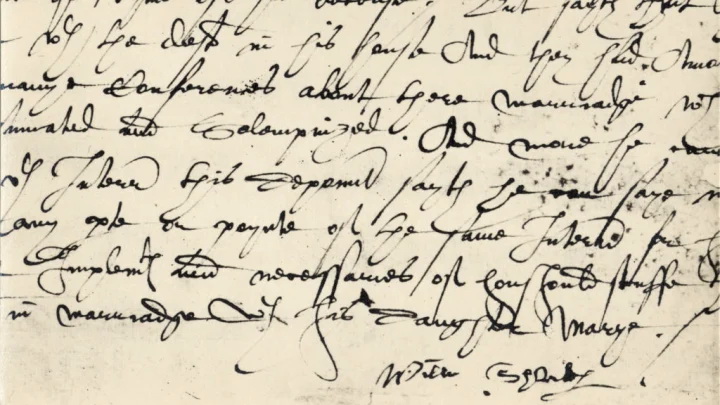 But sayth that
wth the deft in his house And they had Amo
manye Conferences about there marriadge wch
sumated and Solempnized. And more he can
vth Interr this depont sayth he can saye n
any pte or poynte of the same Interr for h
Implemts and necessaries of houshould stuffe
in marriadge wth his daughter Marye.
Willm Shakp